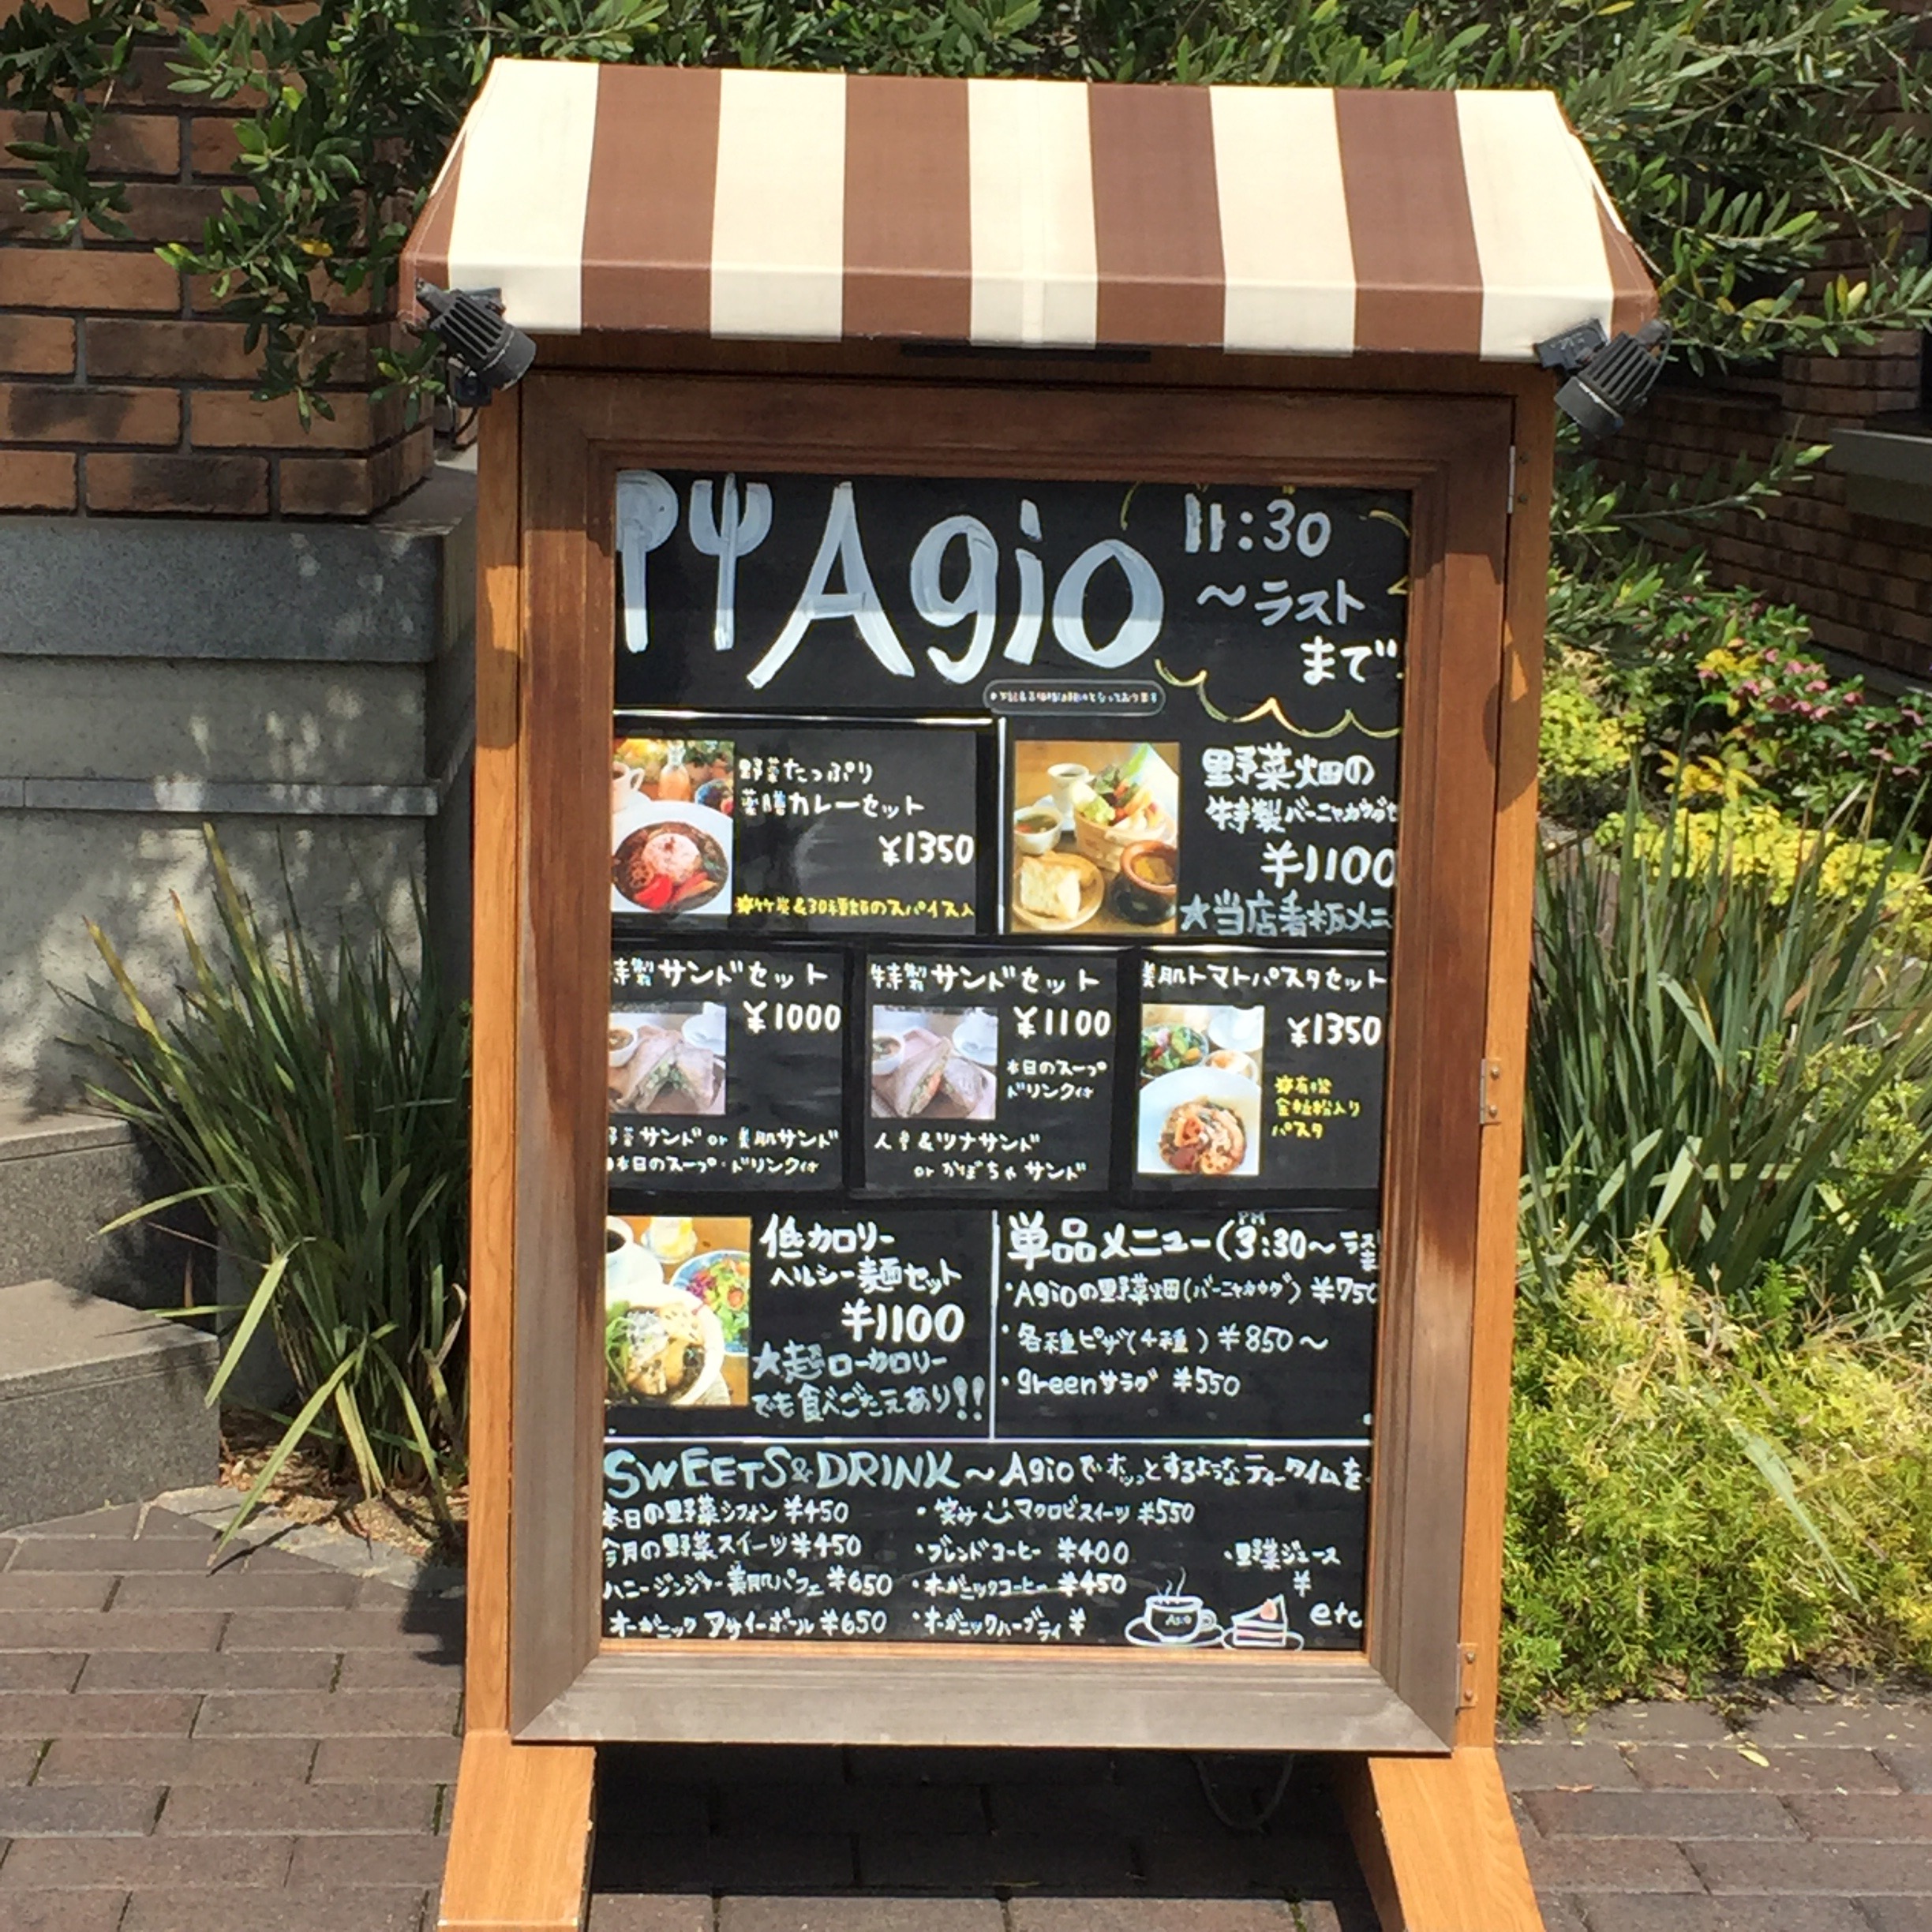 Agio
11:30
～ラスト
まで
野菜たっぷり
薬膳カレーセット
¥1350
※竹炭&30種類のスパイス入
野菜畑の
特製バーニャカウダセ
¥1100
★当店看板メニ
特製サンドセット
¥1000
野菜サンド or 美肌サンド
本日のスープ・ドリンク付
特製サンドセット
¥1100
本日のスープ
ドリンク付
人参&ツナサンド
or かぼちゃサンド
美肌トマトパスタセット
¥1350
パスタ
低カロリー
ヘルシー麺セット
¥1100
★超ローカロリー
でも食べごたえあり!!
単品メニュー(PM3:30～ラスト
・Agioの野菜畑(バーニャカウダ) ¥750
・各種ピザ(4種) ¥850～
・greenサラダ ¥550
SWEETS&DRINK～Agioでホッとするようなティータイムを
本日の野菜シフォン ¥450
今月の野菜スイーツ ¥450
ハニージンジャー美肌パフェ ¥650
オーガニック アサイーボール ¥650
・笑み マクロビスイーツ ¥550
・ブレンドコーヒー ¥400
・オーガニックコーヒー ¥450
・オーガニックハーブティ ¥
・野菜ジュース
¥
Agio
etc